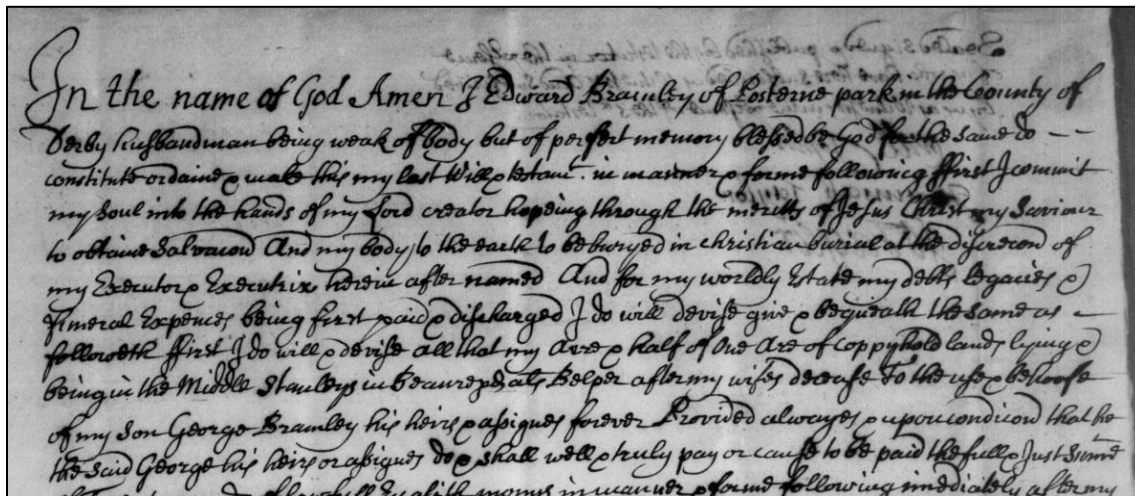 In the name of God Amen I Edward Bramley of Posterne park in the County of
Derby husbandman being weak of body but of perfect memory blessed be God for the same do — —
constitute ordaine & make this my last Will & testamt. in manner & forme following ffirst I commit
my Soul into the hands of my Lord creator hopeing through the meritts of Jesus Christ my Saviour
to obtaine Salvacon And my body to the earth to be buryed in christian burial at the discrecon of
my Executor & Executrix herein after named And for my worldly Estate my debts Legacies &
Funeral Expences being first paid & discharged I do will devise give & bequeath the same as —
followeth ffirst I do will & devise all that my Acre & half of One Acre of Coppyhold lands lying &
being in the Middle Stanleys in Belper after my wifes decease To the use & behoofe
of my Son George Bramley his heirs & assignes forever Provided alwayes & upon condicon that he
the said George his heirs or assignes do & shall well & truly pay or cause to be paid the full & Just Summe
of lawfull English money in manner & forme following imediately after my